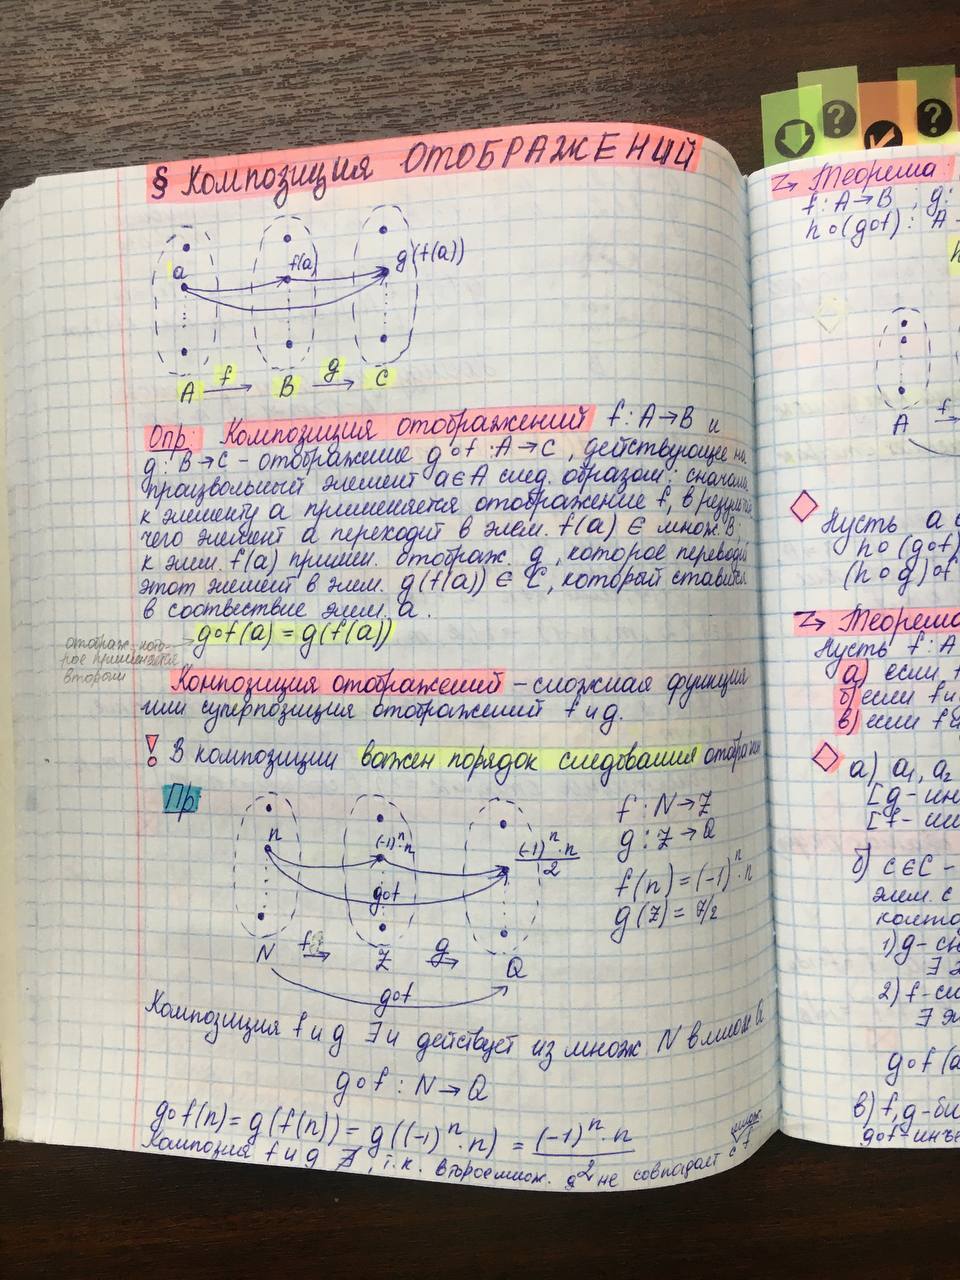 § Композиция ОТОБРАЖЕНИЙ
a f(a) g(f(a))
A f→ B g→ C
Опр: Композиция отображений f: A→B и
g: B→C – отображение g∘f : A→C, действующее на
произвольный элемент a∈A след. образом: сначала
к элементу a применяется отображение f, в результ
чего элемент a переходит в элем. f(a) ∈ множ B,
к элем. f(a) примен. отображ. g, которое переводит
этот элемент в элем. g(f(a)) ∈ C, который ставится
в соотвествие элем. a.
g∘f(a) = g(f(a))
отображ. кото-
рое применяется
вторым
Композиция отображений – сложная функция
или суперпозиция отображений f и g.
! В композиции важен порядок следования отображ
Пр
n (-1)ⁿ·n (-1)ⁿ·n/2
g∘f
N f→ Z g→ Q
g∘f
f : N→Z
g : Z→Q
f(n) = (-1)ⁿ·n
g(z) = z/2
Композиция f и g ∃ и действует из множ N в множ Q
g∘f : N→Q
g∘f(n) = g(f(n)) = g((-1)ⁿ·n) = (-1)ⁿ·n/2
Композиция f и g ∄, т.к. второе множ. g не совпадает с f
множ.
Z→ Теорема
f: A→B, g:
h∘(g∘f) : A→
h
A f→
Пусть a ∈
h∘(g∘f)
(h∘g)∘f
Z→ Теорема
Пусть f: A
а) если f
б) если f и
в) если f и
а) a₁, a₂
[g-ин
[f-ин
б) c∈C –
элем. c
кото
1) g-сю
∃
2) f-сю
∃ э
g∘f(a
в) f, g-би
g∘f-инъе